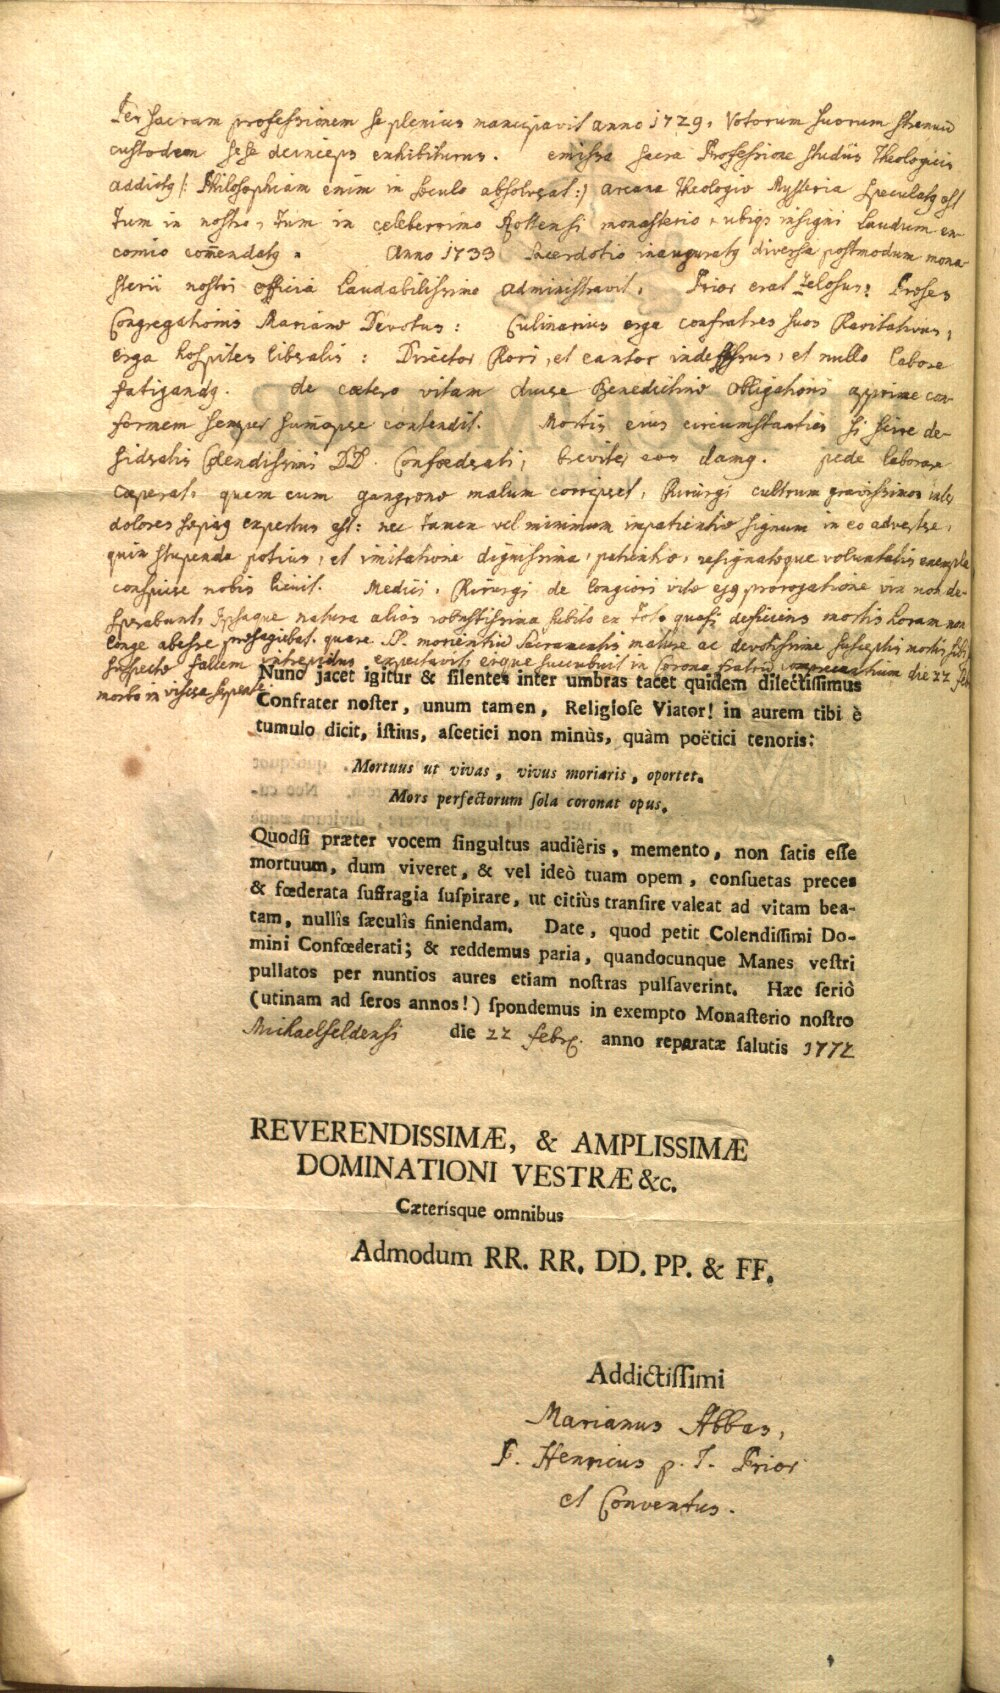 Per sacram professionem se plenius mancipavit anno 1729, Votorum suorum strenuū
custodem sese deinceps exhibiturus. emissa sacra Professione studiis Theologicis
addictꝯ (: Philosophiam enim in sæculo absolverat :) arcana Theologiæ Mysteria speculatꝯ est
tum in nostro, tum in celeberrimo Rottensi monasterio, ubiqꝫ insigni laudum en-
comio com̄endatꝯ. Anno 1733 Sacerdotio inauguratꝯ diversa postmodum mona-
sterii nostri officia laudabilissime administravit. Prior erat Zelosus: Præses
Congregationis Marianæ Devotus: Culinarius erga confratres suos Charitativus,
erga hospites liberalis: Director Chori, et cantor indefessus, et nullo labore
fatigandꝯ. de cætero vitam suæ Benedictinæ obligationi apprime con-
formem semper sum̄opere contendit. Mortis eius circumstantias si scire de-
sideratis Colendissimi DD. Confœderati, breviter eas damꝯ. pede laborare
cœperat, quem cum gangrenæ malum corripset, Chirurgi cultrum gravissimos inter
dolores sæpiꝯ expertus est: nec tamen vel minimum impatientiæ signum in eo advertere,
quin stupenda potius, et imitatione dignissima, patientiæ, resignatæque voluntatis exempla
conspicere nobis licuit. Medici, Chirurgi de longiori vitæ ejꝯ prorogatione vix non de-
sperabant, Ipsaque natura alias robustissima subito ex toto quasi deficiens mortis horam non
longe abesse præsagiebat. quare SS. morientiū Sacramentis mature ac devotissime susceptis mortis sibi
 fallem intrepidus expectavit, eique succubuit in corona fratrū comprecantium die 22 feb
morbo in viscera serpente.
Nunc jacet igitur & silentes inter umbras tacet quidem dilectissimus
Confrater noster, unum tamen, Religiose Viator! in aurem tibi è
tumulo dicit, istius, ascetici non minùs, quàm poëtici tenoris:
Mortuus ut vivas, vivus moriaris, oportet.
Mors perfectorum sola coronat opus.
Quodsi præter vocem singultus audiêris, memento, non satis esse
mortuum, dum viveret, & vel ideò tuam opem, consuetas preces
& fœderata suffragia suspirare, ut citiùs transire valeat ad vitam bea-
tam, nullìs sæculìs finiendam. Date, quod petit Colendissimi Do-
mini Confœderati; & reddemus paria, quandocunque Manes vestri
pullatos per nuntios aures etiam nostras pulsaverint. Hæc seriò
(utinam ad seros annos!) spondemus in exempto Monasterio nostro
Michaelfeldensi die 22 febr. anno reparatæ salutis 1772
REVERENDISSIMÆ, & AMPLISSIMÆ
DOMINATIONI VESTRÆ &c.
Cæterísque omnibus
Admodum RR. RR. DD. PP. & FF.
Addictissimi
Marianus Abbas,
P. Henricus p. T. Prior
et Conventus.